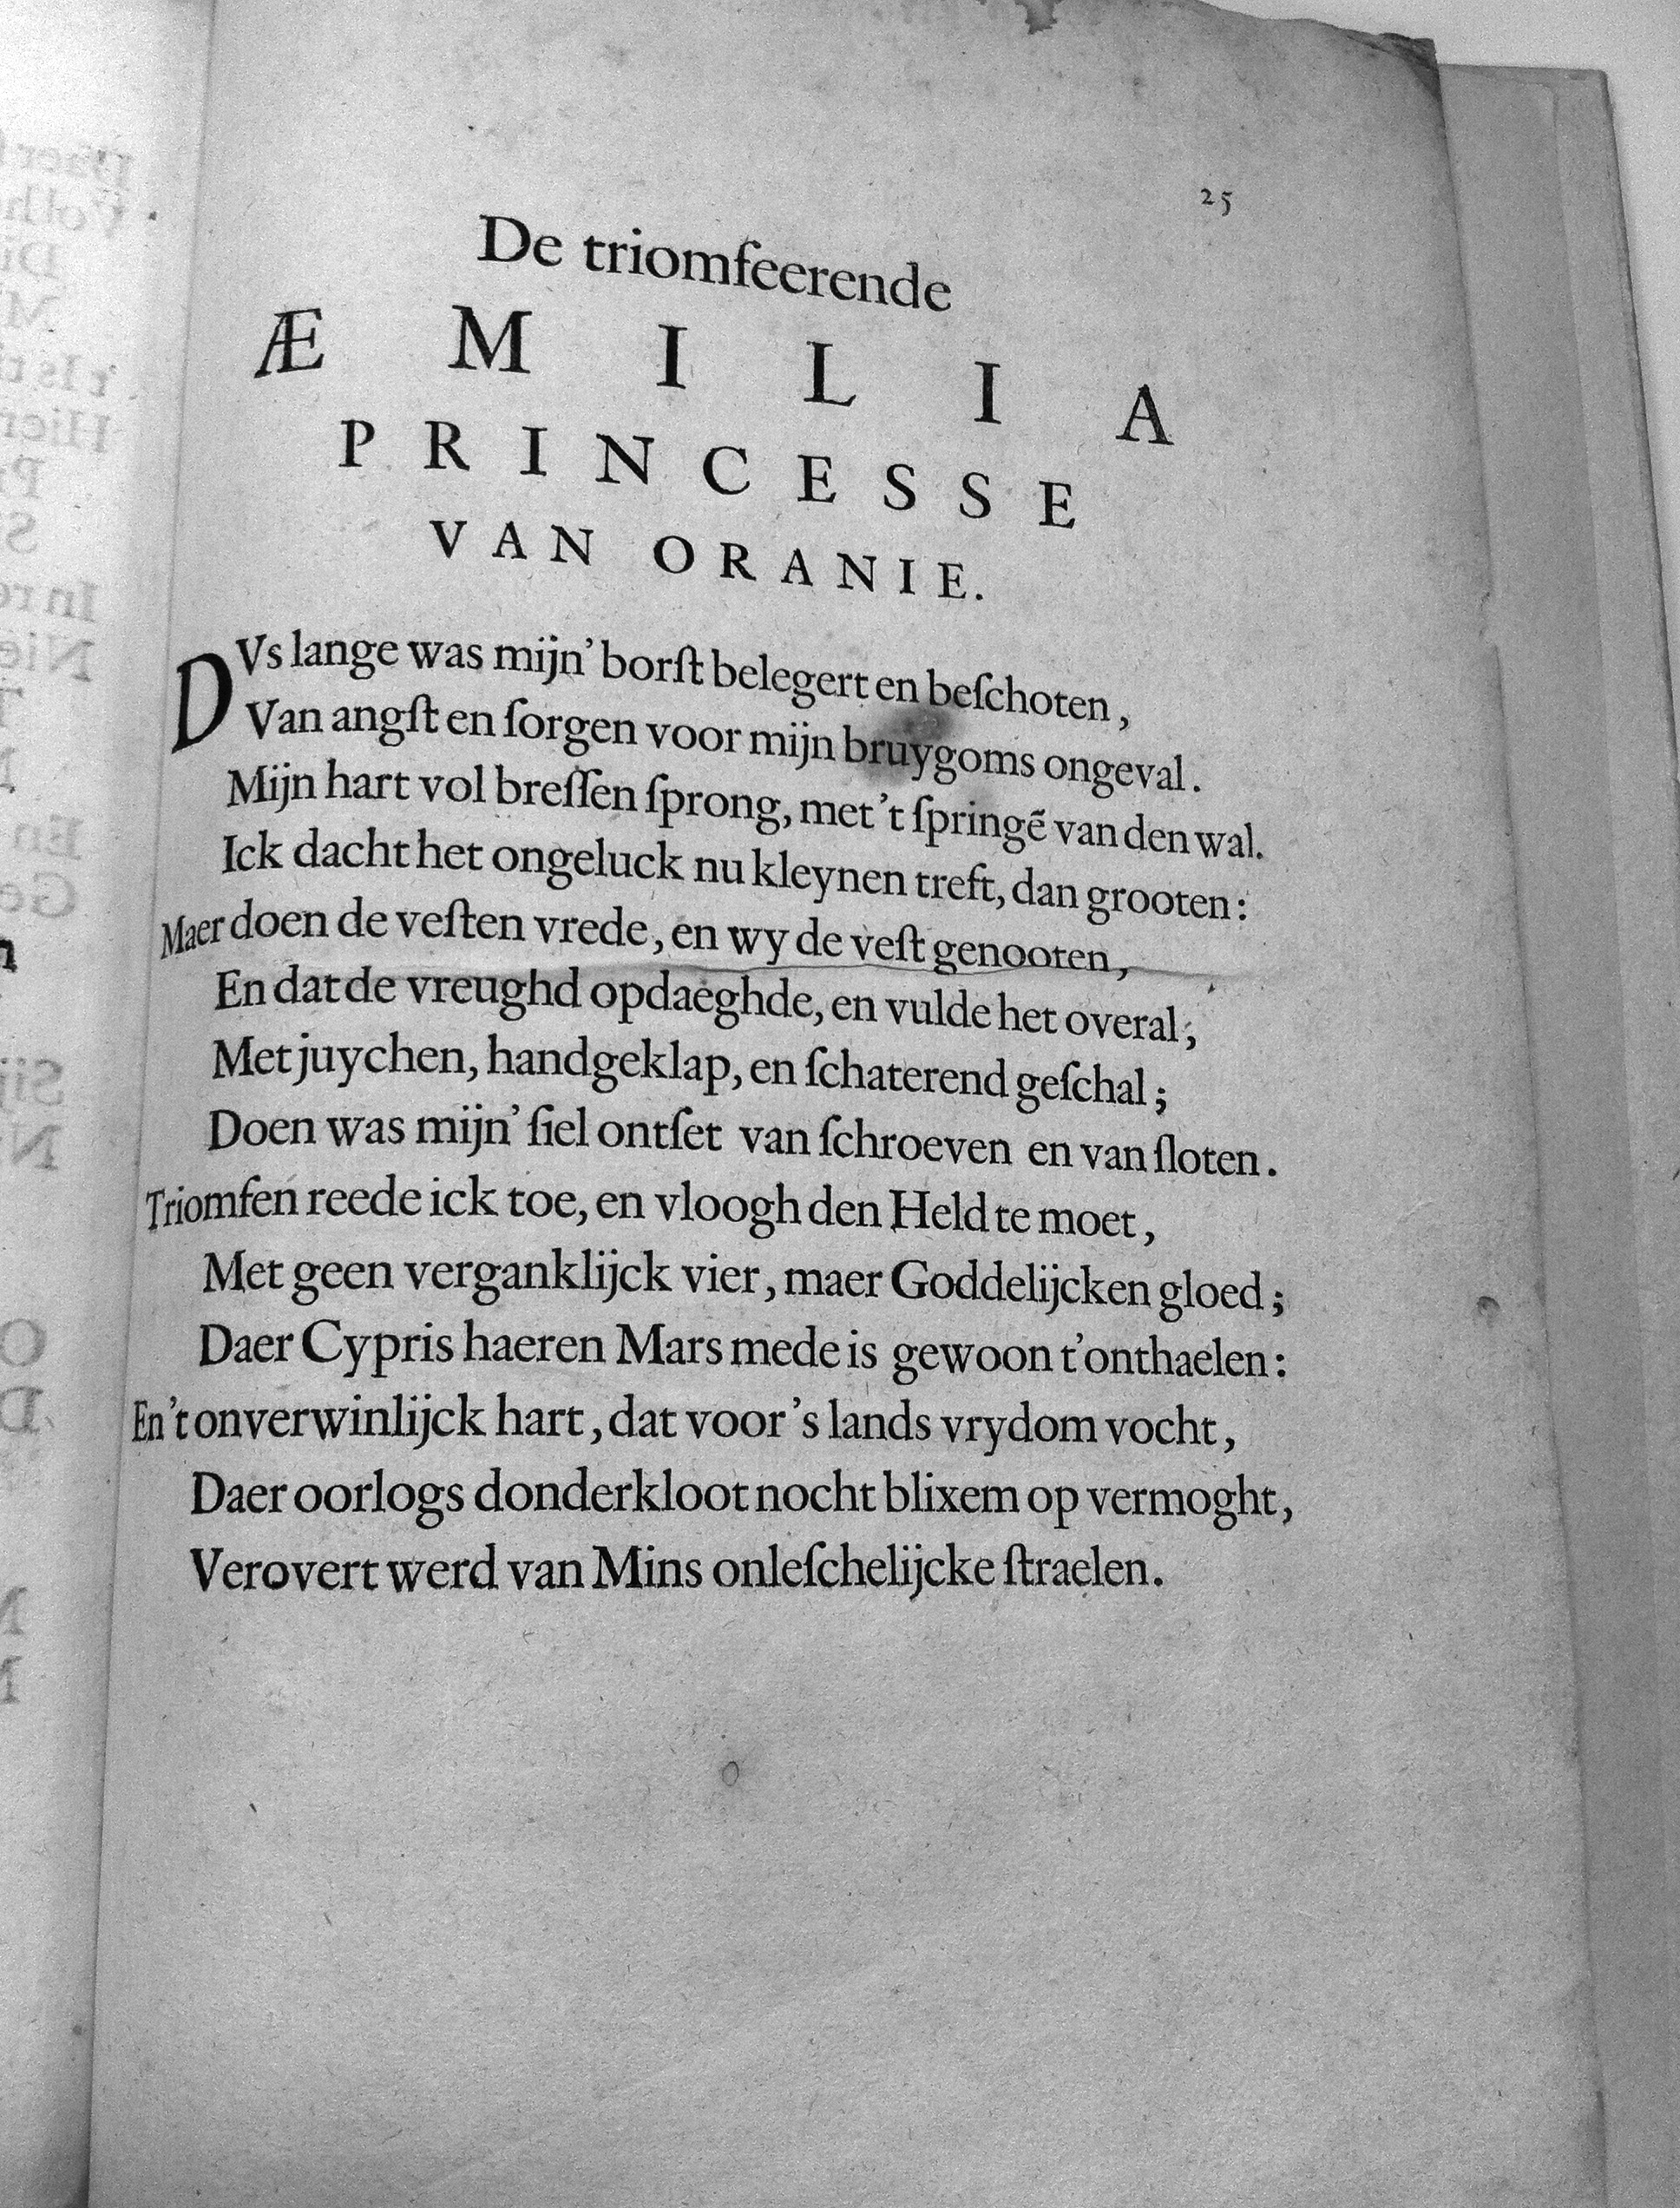 25
De triomfeerende
ÆMILIA
PRINCESSE
VAN ORANIE.
DVs lange was mijn' borſt belegert en beſchoten,
Van angſt en ſorgen voor mijn bruygoms ongeval.
Mijn hart vol breſſen ſprong, met 't ſpringẽ van den wal.
Ick dacht het ongeluck nu kleynen treft, dan grooten:
Maer doen de veſten vrede, en wy de veſt genooten,
En dat de vreughd opdaeghde, en vulde het overal;
Met juychen, handgeklap, en ſchaterend geſchal;
Doen was mijn' ſiel ontſet van ſchroeven en van ſloten.
Triomfen reede ick toe, en vloogh den Held te moet,
Met geen verganklijck vier, maer Goddelijcken gloed;
Daer Cypris haeren Mars mede is gewoon t'onthaelen:
En 't onverwinlijck hart, dat voor 's lands vrydom vocht,
Daer oorlogs donderkloot nocht blixem op vermoght,
Verovert werd van Mins onleſchelijcke ſtraelen.